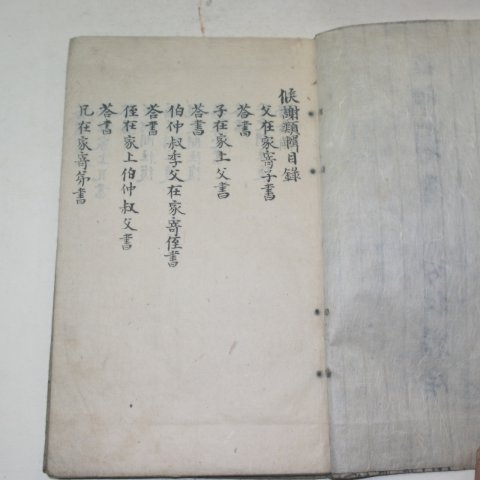 候謝類輯目錄
父在家寄子書
答書
子在家上父書
答書
伯仲叔季父在家寄侄書
答書
侄在家上伯仲叔父書
答書
兄在家寄弟書